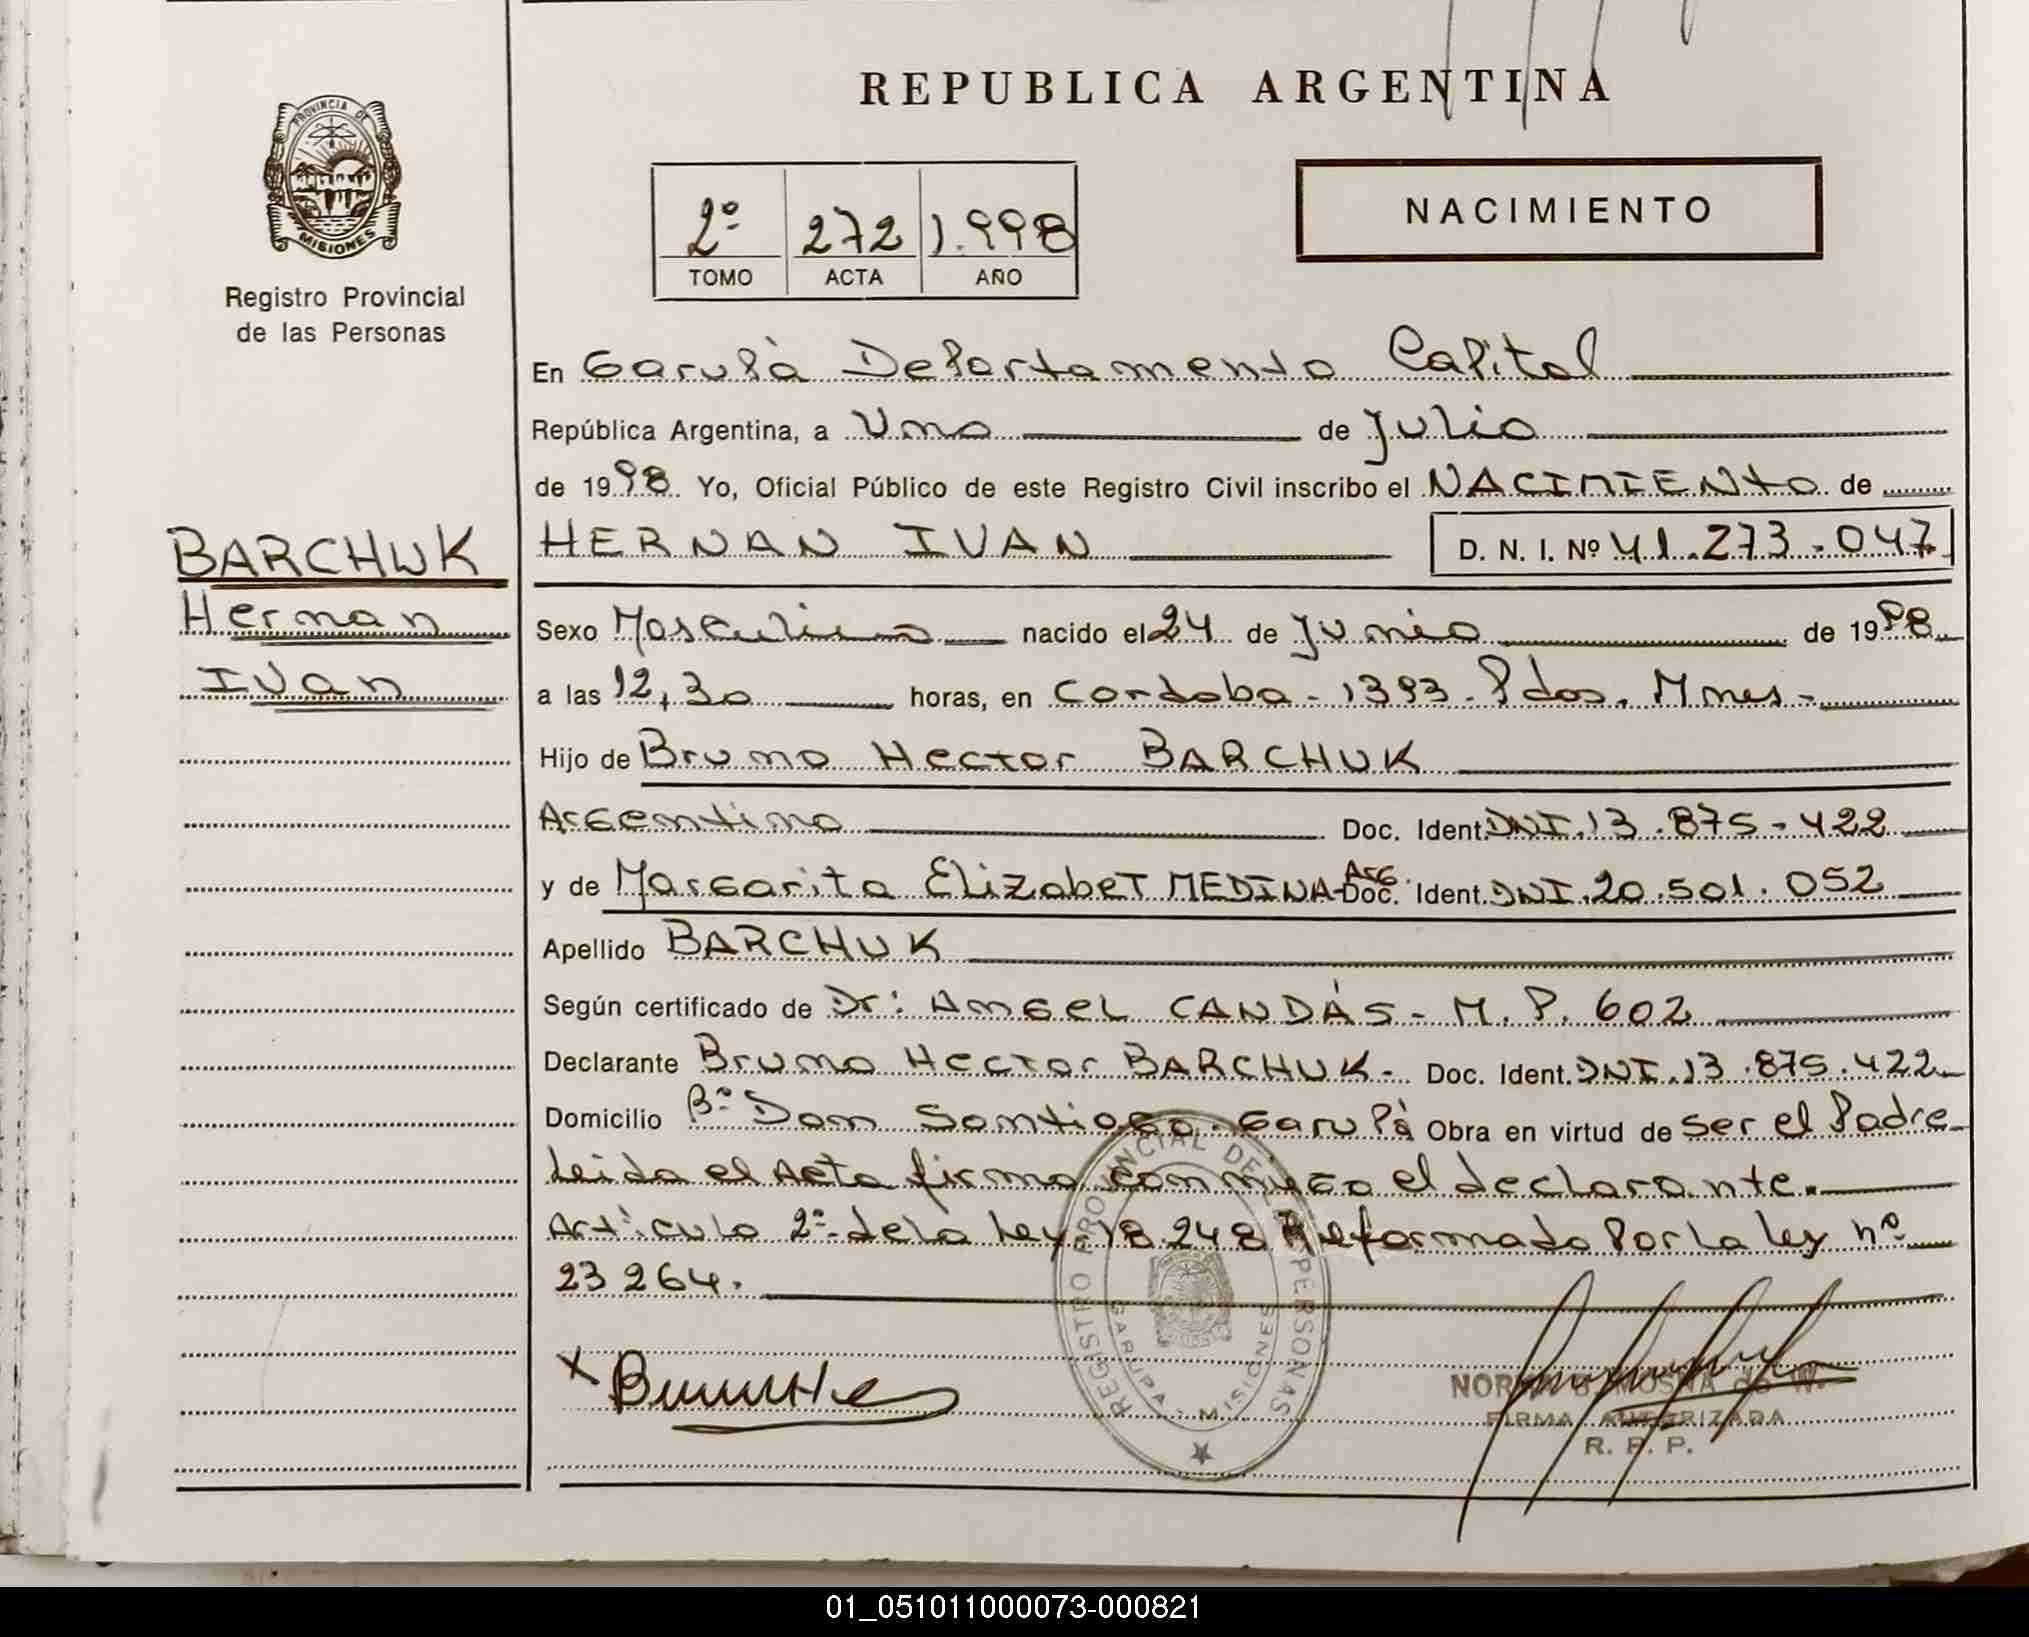 REPUBLICA ARGENTINA
PROVINCIA DE
MISIONES
Registro Provincial
de las Personas
2º 272 1.998
TOMO ACTA AÑO
NACIMIENTO
En Garupà Departamento Capital
República Argentina, a Uno de Julio
de 1998 Yo, Oficial Público de este Registro Civil inscribo el NACIMIENTO de
HERNAN IVAN D. N. I. Nº 41.273.047
BARCHUK
Hernan
Ivan
Sexo Masculino nacido el 24 de Junio de 1998
a las 12,30 horas, en Cordoba - 1393 - Pdas. Mnes -
Hijo de Bruno Hector BARCHUK
Argentino Doc. Ident. DNI. 13.875.422
y de Margarita Elizabet MEDINA - Arg. Doc. Ident. DNI. 20.501.052
Apellido BARCHUK
Según certificado de Dr: Angel CANDÁS - M. P. 602
Declarante Bruno Hector BARCHUK - Doc. Ident. DNI. 13.875.422
Domicilio Bº Don Santiago - Garupà Obra en virtud de ser el Padre
Leida el Acta firma conmigo el declarante.
Articulo 2º de la Ley 18.248 Reformado Por la ley nº
23264.
REGISTRO PROVINCIAL DE LAS PERSONAS
GARUPA - MISIONES
x
MOSNA de W.
FIRMA AUTORIZADA
R. P. P.
01_051011000073-000821